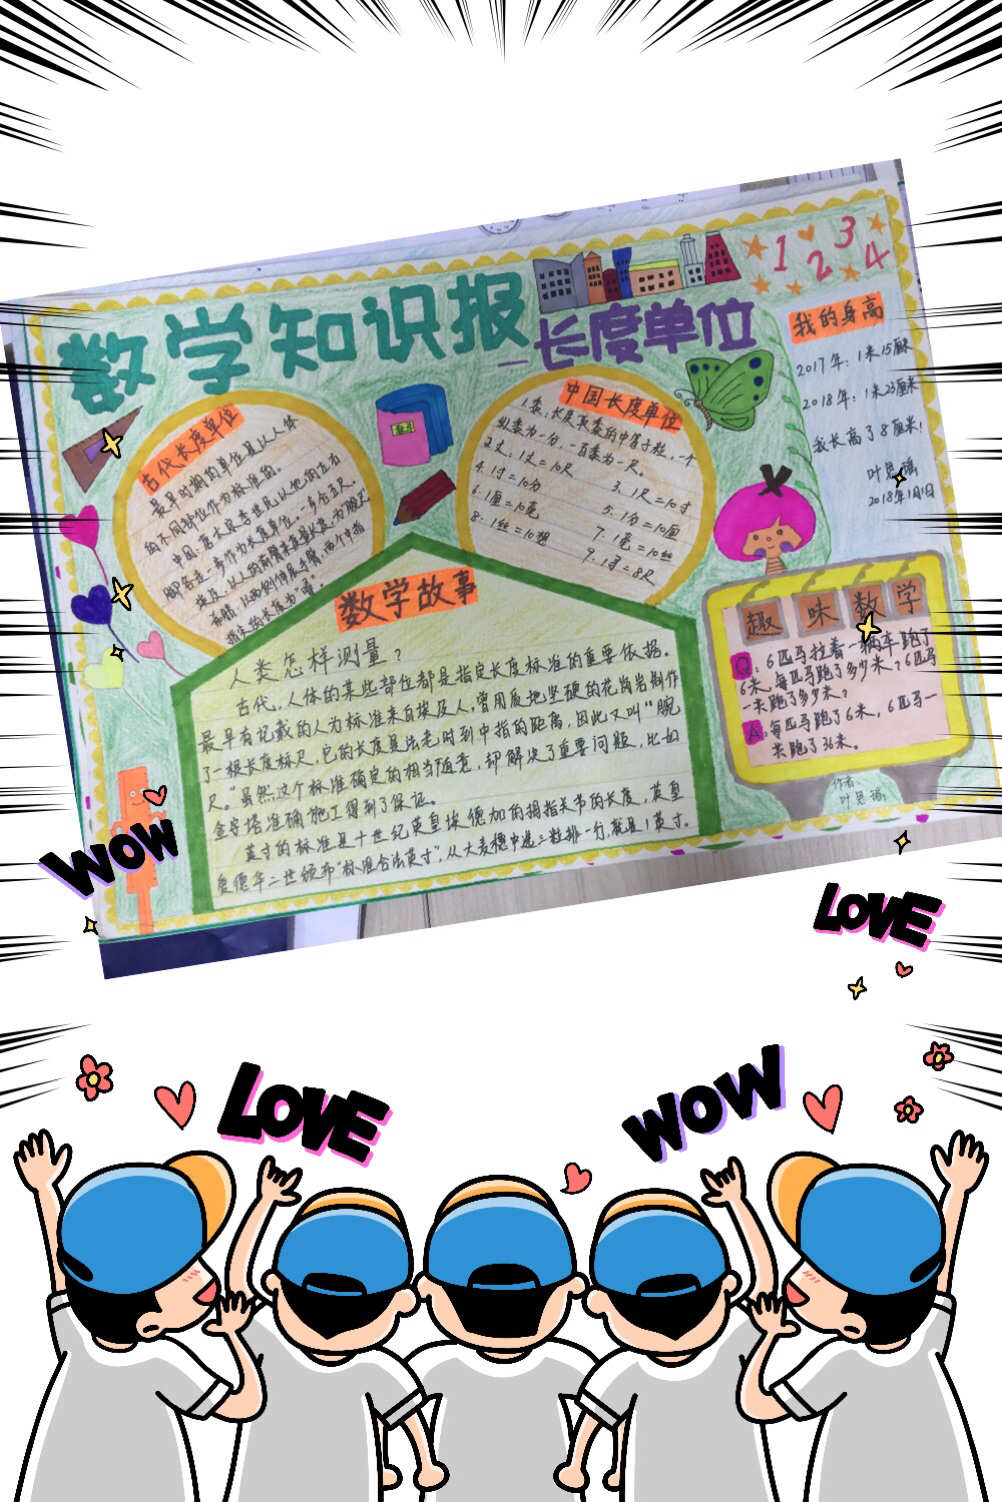 数学知识报
—长度单位
1 2 3 4
我的身高
2017年：1米15厘米
2018年：1米23厘米
我长高了8厘米！
叶思瑶
2018年1月1日
古代长度单位
最早时期的单位是以人体
的不同部位作为标准的。
中国，唐太宗李世民，以他的左右
脚各走一步作为长度单位，一步合五尺。
中国长度单位
1.黍：长度取黍的中等子粒，一个
纵黍为一分，一百黍为一尺。
2.丈，1丈=10尺
3.1尺=10寸
4.1寸=10分
5.1分=10厘
6.1厘=10毫
7.1毫=10丝
8.1丝=10忽
9.1寻=8尺
数学故事
人类怎样测量？
古代，人体的某些部位都是指定长度标准的重要依据。
最早有记载的人为标准来自埃及人，曾用质地坚硬的花岗岩制作
了一根长度标尺，它的长度是法老肘到中指的距离，因此又叫“腕
尺。”虽然这个标准确定的相当随意，却解决了重要问题，比如
金字塔准确施工得到了保证。
英寸的标准是十世纪英皇埃德加的拇指关节的长度，英皇
爱德华二世颁布“标准合法英寸”，从大麦穗中选三粒排一行，就是1英寸。
趣味数学
Q：6匹马拉着一辆车跑了
6米，每匹马跑了多少米？6匹马
一共跑了多少米？
A：每匹马跑了6米，6匹马一
共跑了36米。
作者：
叶思瑶
WOW
LOVE
LOVE
WOW